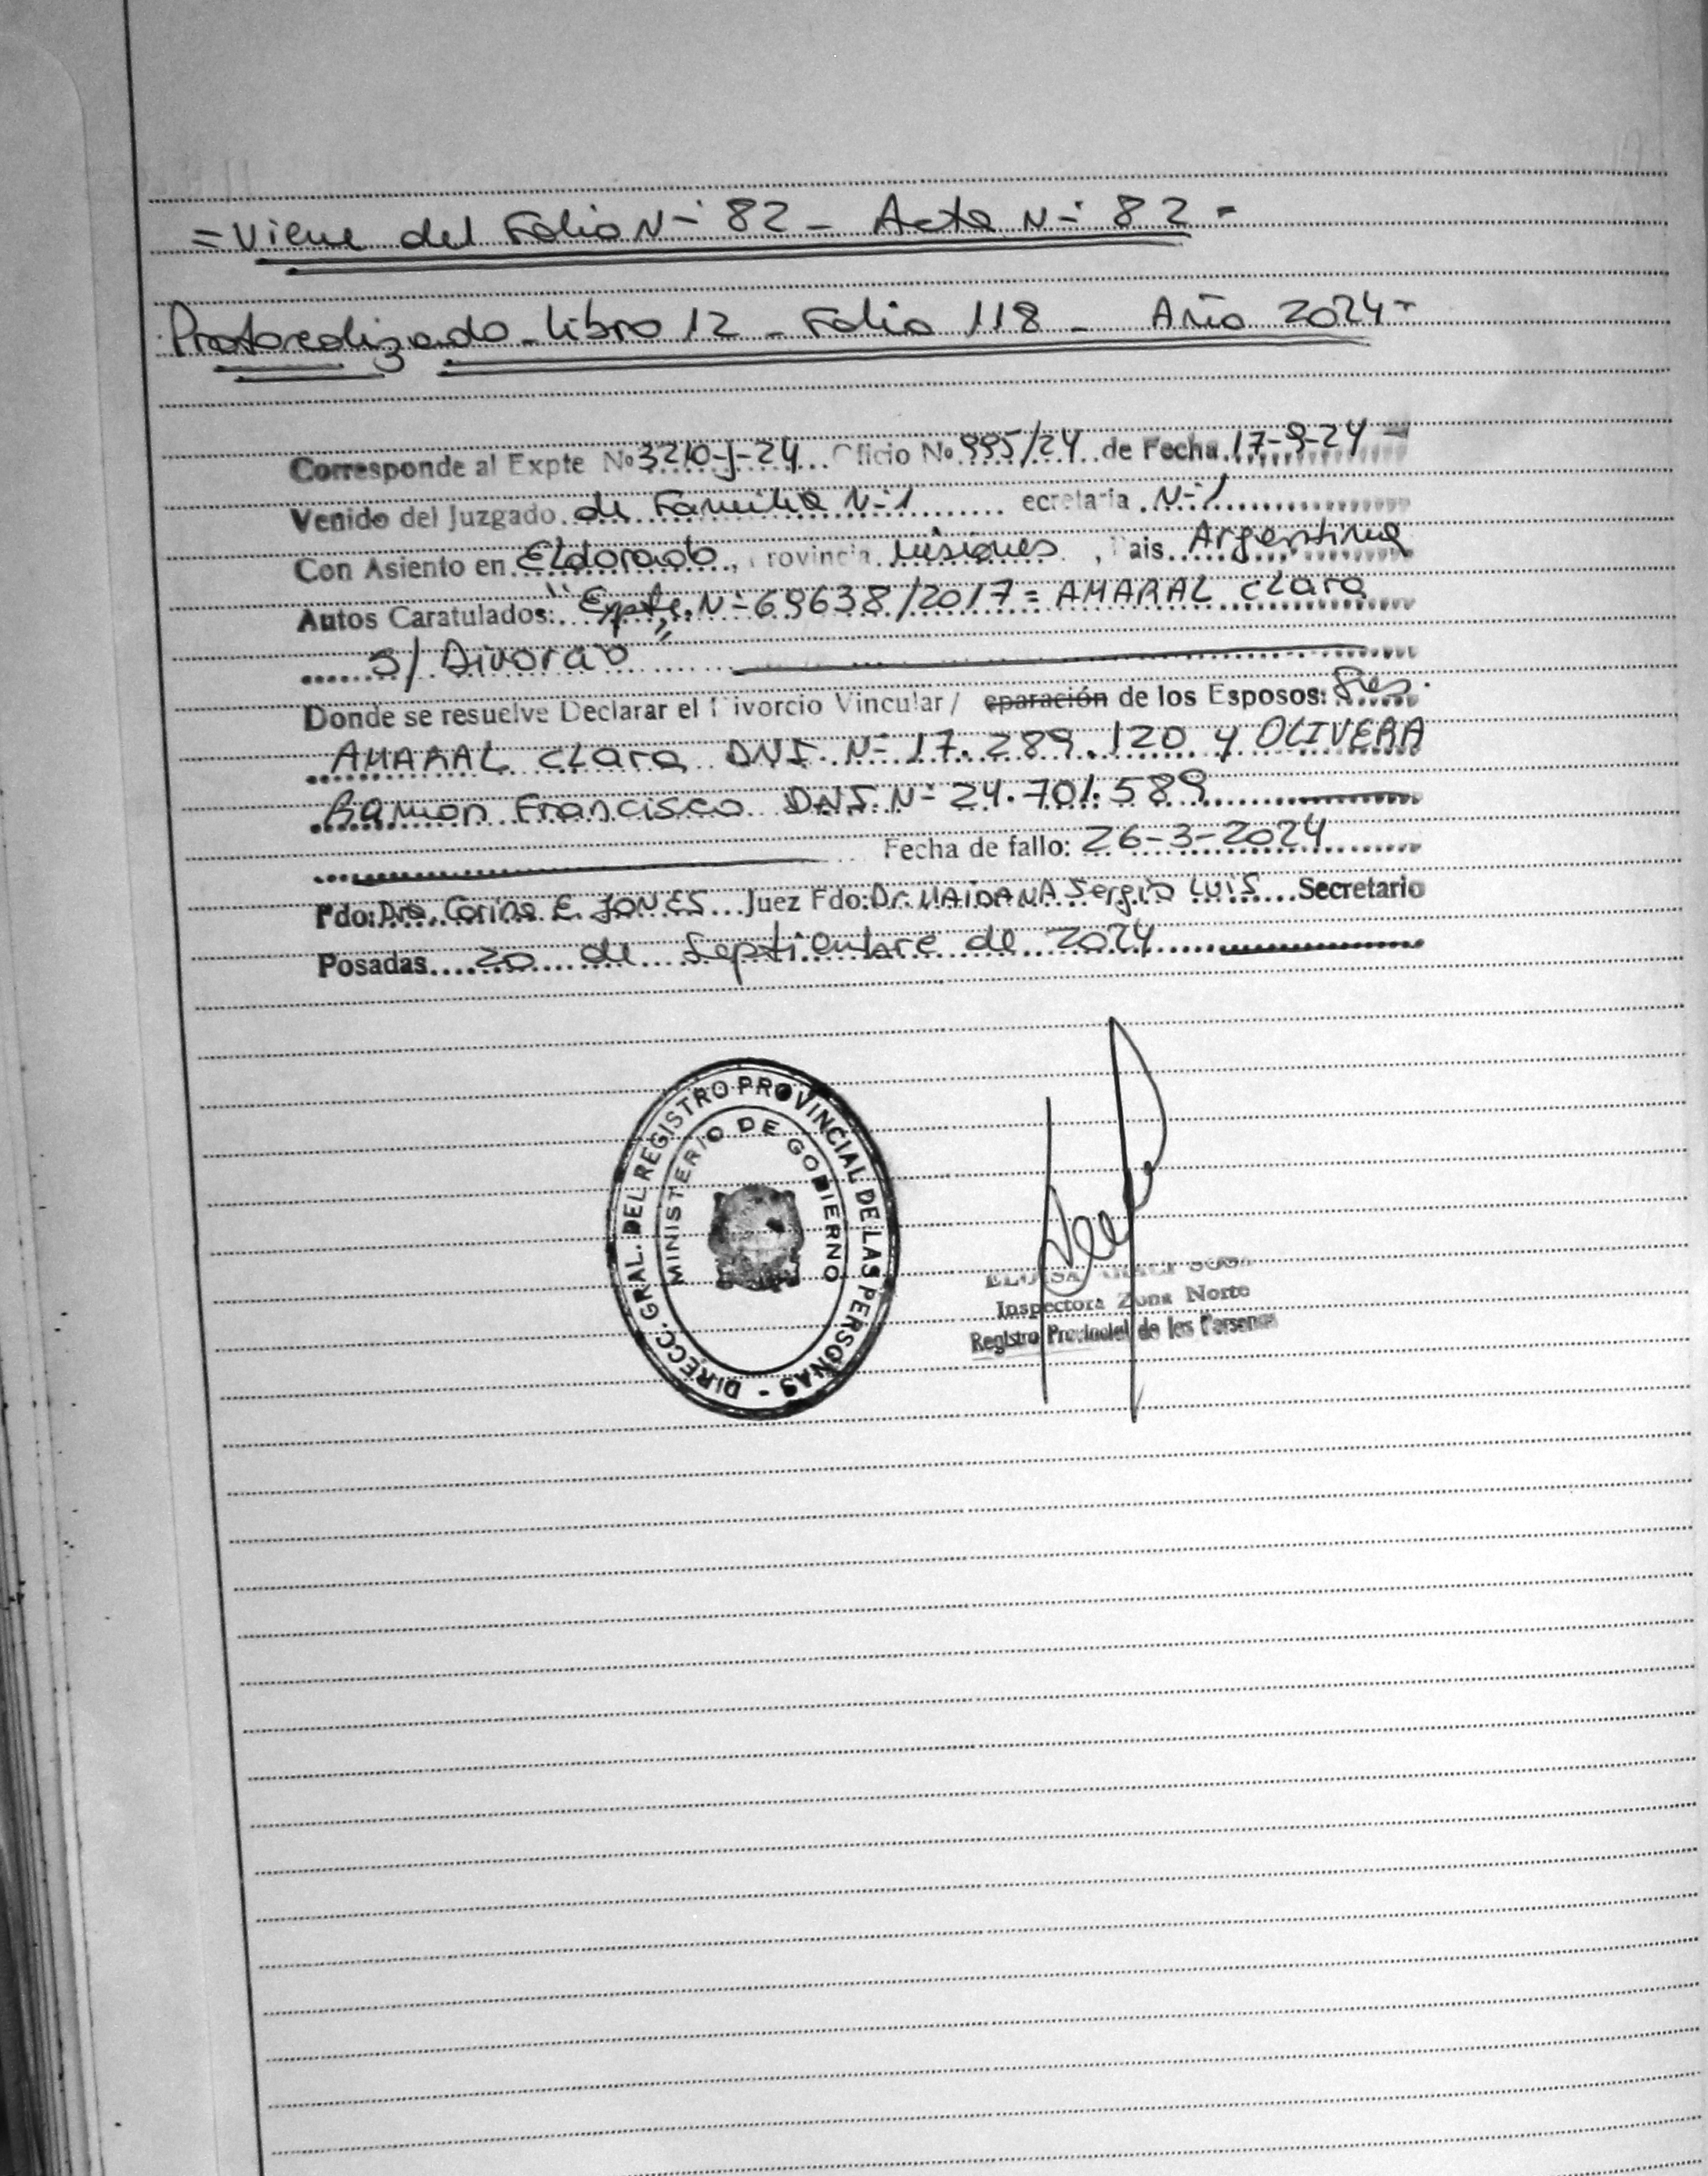 = Viene del Folio N- 82 - Acta N- 82 -
Protocolizado - Libro 12 - Folio 118 - Año 2024 -
Corresponde al Expte Nº 3210-J-24 Oficio Nº 995/24 de Fecha 17-9-24 -
Venido del Juzgado de Familia N-1 ecretaría N-1
Con Asiento en Eldorado, Provincia Misiones, Pais Argentina
Autos Caratulados: "Expte. N- 69638/2017 = AMARAL Clara
S/ Divorcio"
Donde se resuelve Declarar el Divorcio Vincular / eparación de los Esposos: Sres.
AMARAL Clara DNI. N- 17.289.120 y OLIVERA
Ramon Francisco DNI. N- 24.701.589
Fecha de fallo: 26-3-2024
Fdo: Dra. Corina E. JONES Juez Fdo: Dr. MAIDANA Sergio LUIS Secretario
Posadas 20 de Septiembre de 2024
DIRECC. GRAL. DEL REGISTRO PROVINCIAL DE LAS PERSONAS -
MINISTERIO DE GOBIERNO
SOSA
Inspectora Zona Norte
Registro Provincial de las Personas